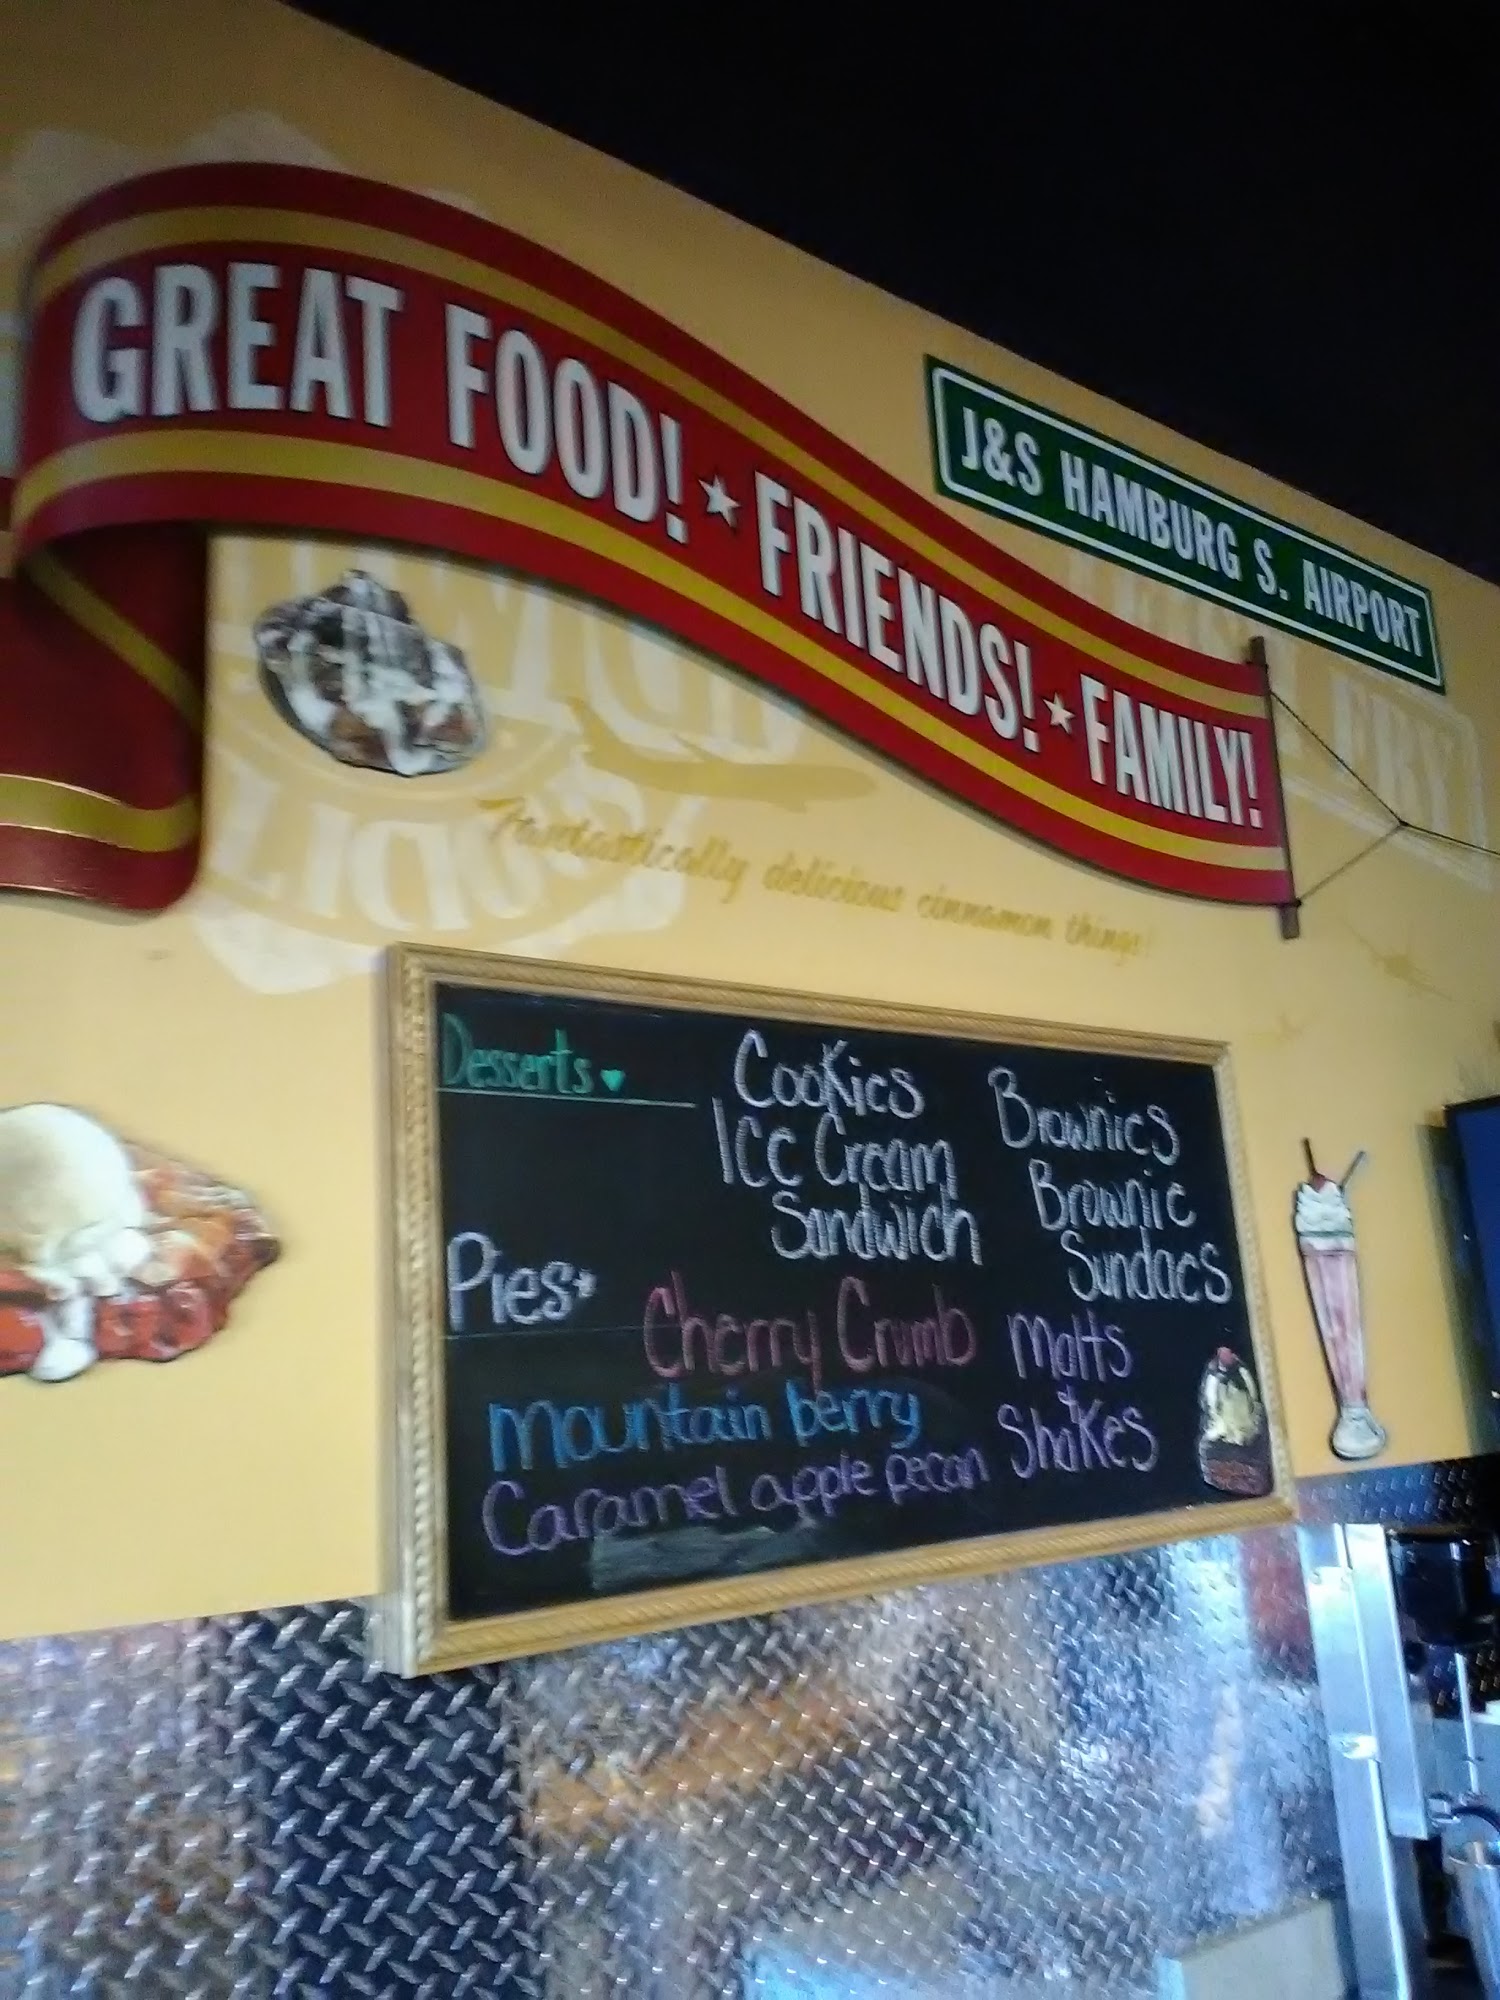 GREAT FOOD! ★ FRIENDS! ★ FAMILY!
J&S HAMBURG S. AIRPORT
Fantastically delicious cinnamon things!
Desserts ♥
Cookies
Ice Cream
Sandwich
Brownies
Brownie
Sundaes
Pies
Cherry Crumb
mountain berry
Caramel apple pecan
Malts
&
Shakes